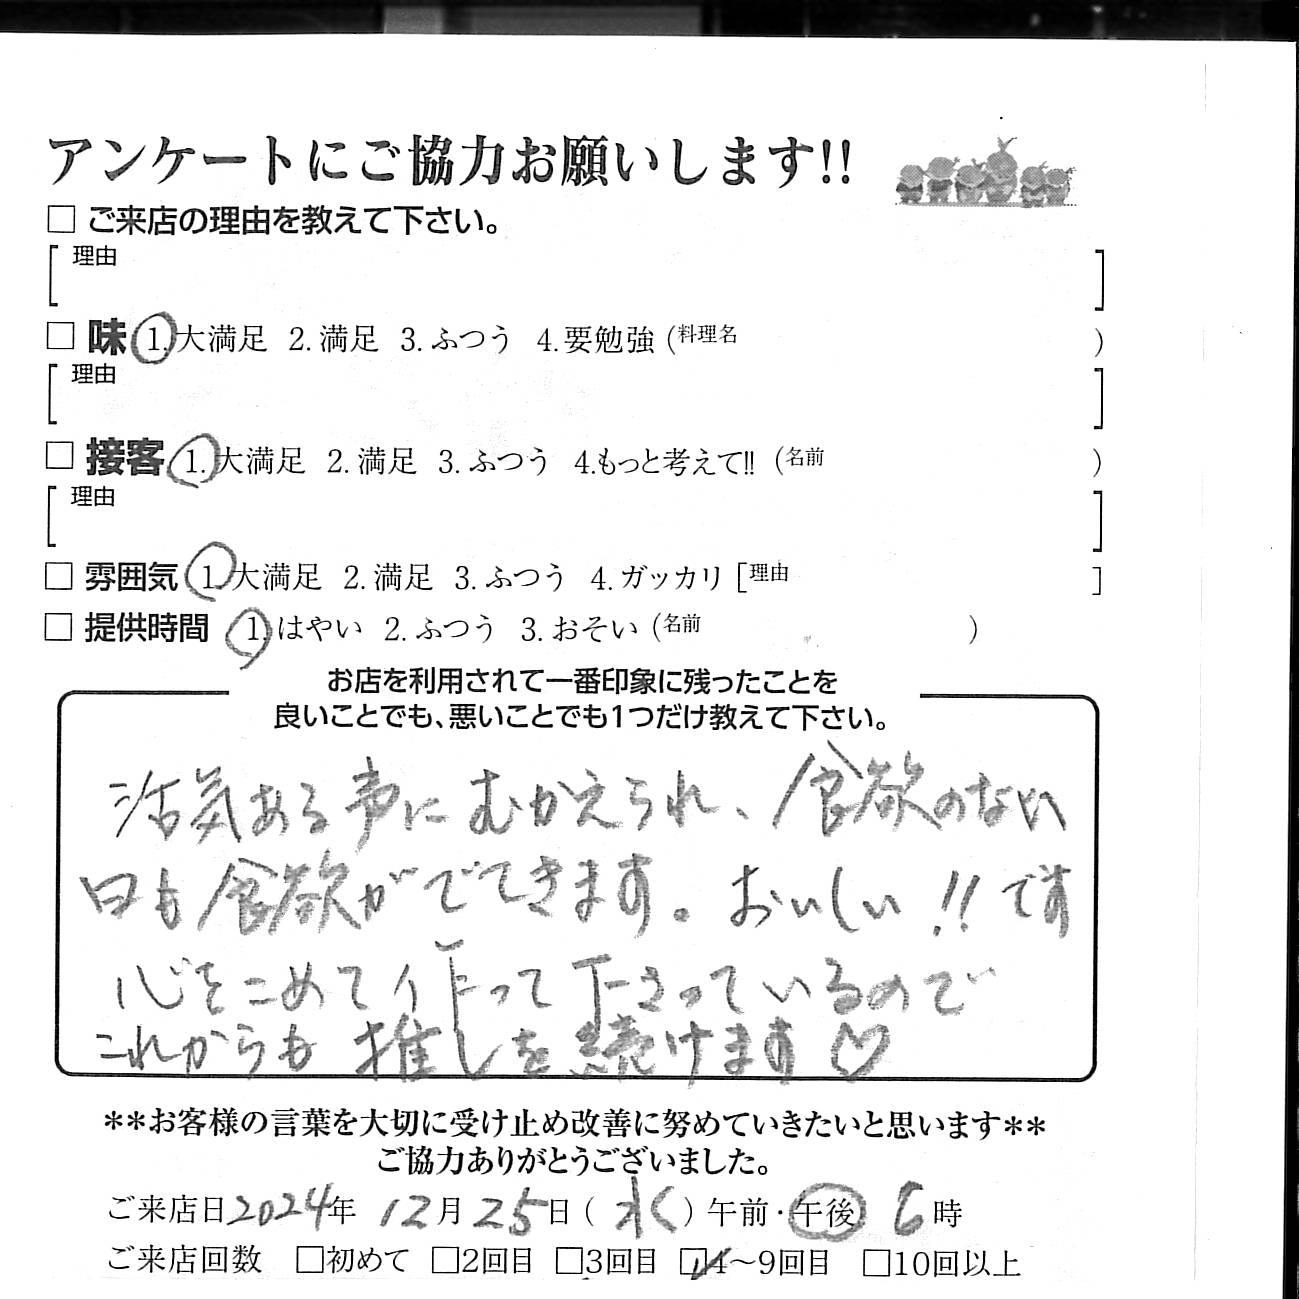 アンケートにご協力お願いします!!
□ ご来店の理由を教えて下さい。
[理由 ]
□ 味 1. 大満足 2. 満足 3. ふつう 4. 要勉強 (料理名 )
[理由 ]
□ 接客 1. 大満足 2. 満足 3. ふつう 4.もっと考えて!! (名前 )
[理由 ]
□ 雰囲気 1. 大満足 2. 満足 3. ふつう 4. ガッカリ [理由 ]
□ 提供時間 1. はやい 2. ふつう 3. おそい (名前 )
お店を利用されて一番印象に残ったことを
良いことでも、悪いことでも1つだけ教えて下さい。
活気ある声にむかえられ、食欲のない
日も食欲がでてきます。おいしい!!です
心をこめて作って下さっているので
これからも推しを続けます♡
**お客様の言葉を大切に受け止め改善に努めていきたいと思います**
ご協力ありがとうございました。
ご来店日2024年 12月25日(水)午前・午後 6時
ご来店回数 □初めて □2回目 □3回目 ☑4〜9回目 □10回以上